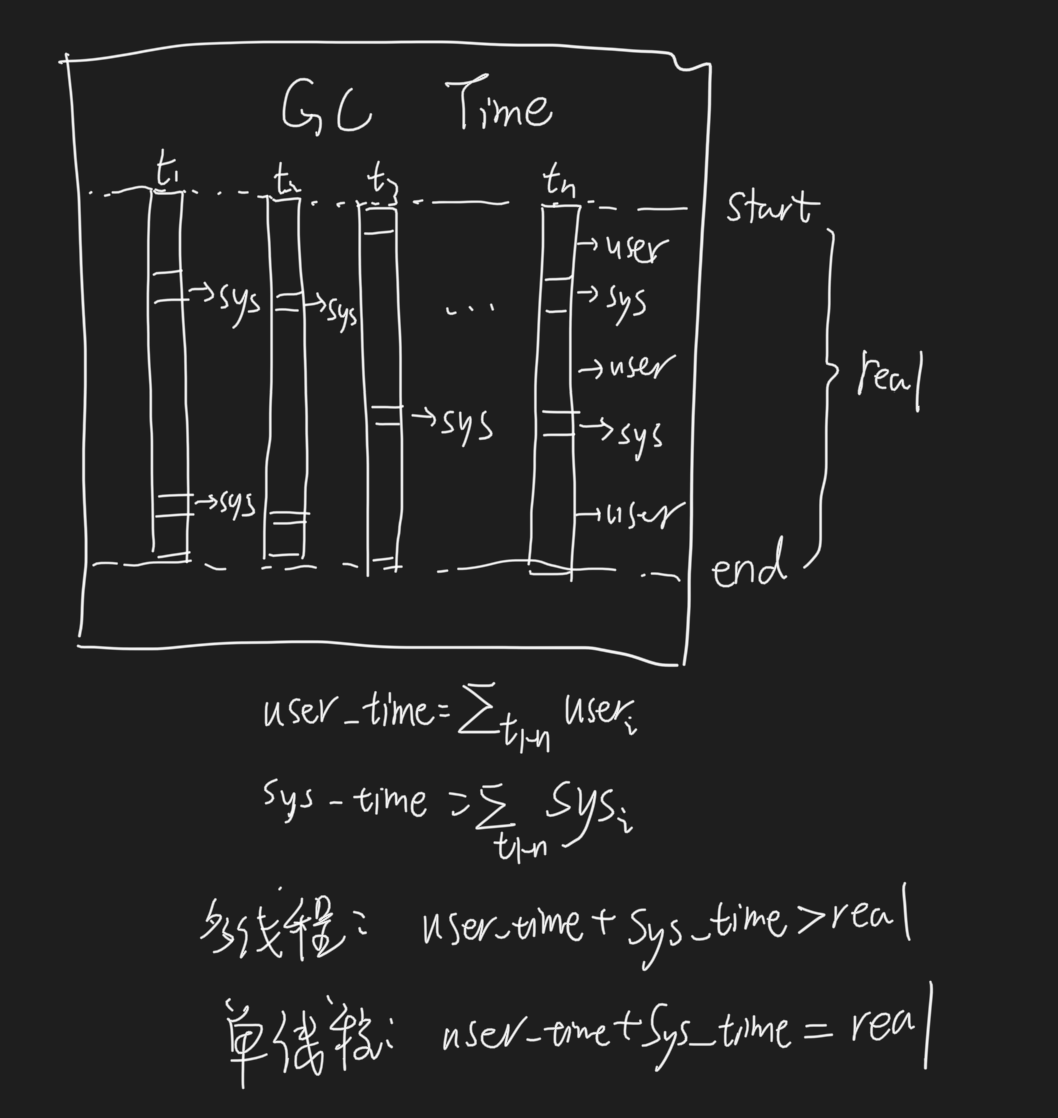 GC Time
t₁ t₂ t₃ tₙ
start
→user
→sys →sys ... →sys
→user
real
→sys →sys
→sys →user
end
user_time=∑t1-n userᵢ
sys-time=∑t1-n sysᵢ
多线程: user_time+sys_time>real
单线程: user_time+sys_time=real